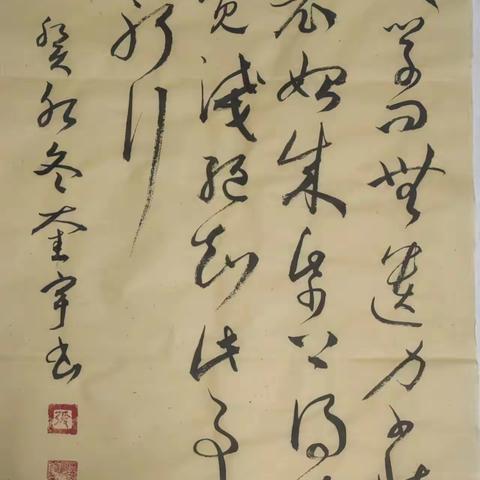 学问無遗力少壮
老始成纸上得
觉浅绝知此事
躬行
癸卯冬奎宇书
張